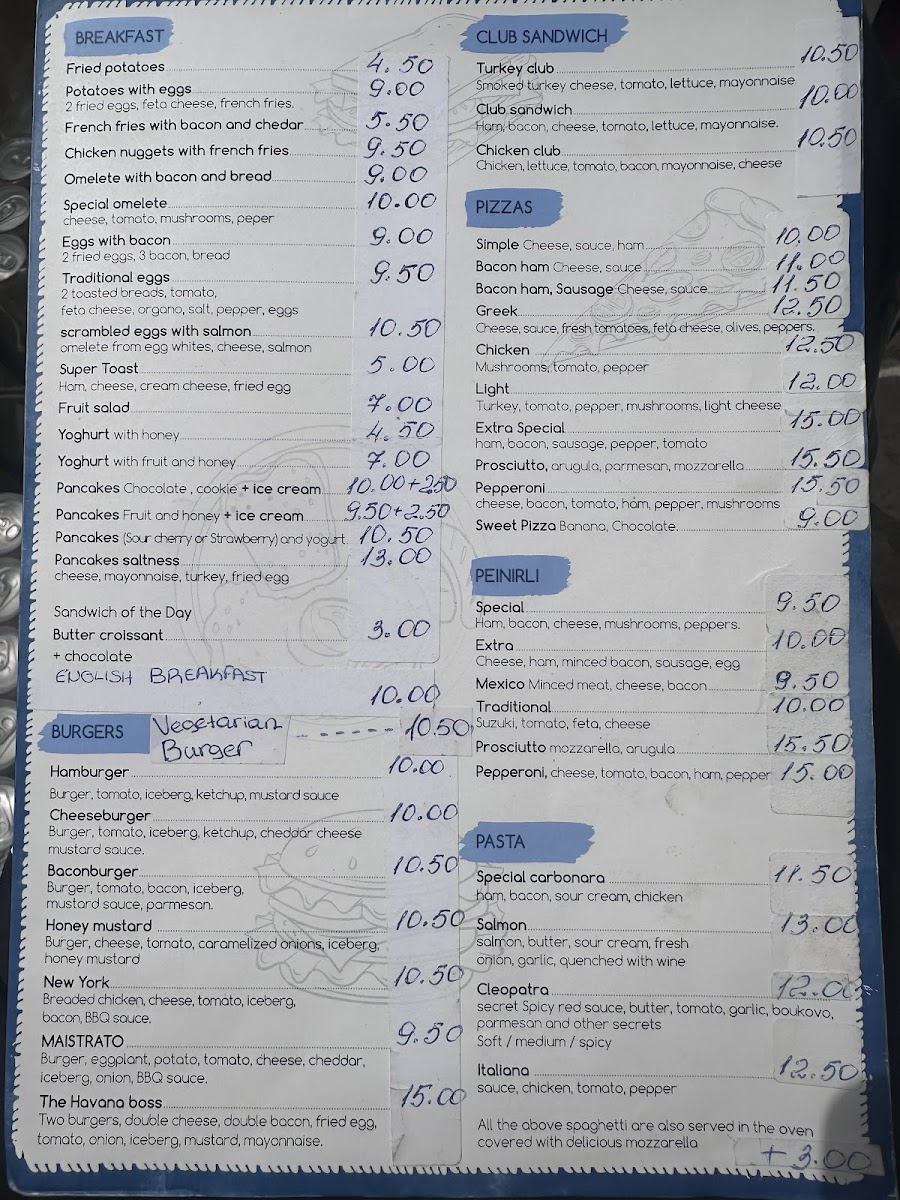 BREAKFAST
Fried potatoes 4.50
Potatoes with eggs 9.00
2 fried eggs, feta cheese, french fries.
French fries with bacon and chedar 5.50
Chicken nuggets with french fries 9.50
Omelete with bacon and bread 9.00
Special omelete 10.00
cheese, tomato, mushrooms, peper
Eggs with bacon 9.00
2 fried eggs, 3 bacon, bread
Traditional eggs 9.50
2 toasted breads, tomato,
feta cheese, organo, salt, pepper, eggs
scrambled eggs with salmon 10.50
omelete from egg whites, cheese, salmon
Super Toast 5.00
Ham, cheese, cream cheese, fried egg
Fruit salad 7.00
Yoghurt with honey 4.50
Yoghurt with fruit and honey 7.00
Pancakes Chocolate , cookie + ice cream 10.00+2.50
Pancakes Fruit and honey + ice cream 9.50+2.50
Pancakes (Sour cherry or Strawberry) and yogurt. 10.50
Pancakes saltness 13.00
cheese, mayonnaise, turkey, fried egg
Sandwich of the Day
Butter croissant 3.00
+ chocolate
ENGLISH BREAKFAST
10.00
BURGERS
Vegetarian
Burger ------ 10.50
Hamburger 10.00
Burger, tomato, iceberg, ketchup, mustard sauce
Cheeseburger 10.00
Burger, tomato, iceberg, ketchup, cheddar cheese
mustard sauce.
Baconburger 10.50
Burger, tomato, bacon, iceberg,
mustard sauce, parmesan.
Honey mustard 10.50
Burger, cheese, tomato, caramelized onions, iceberg,
honey mustard
New York 10.50
Breaded chicken, cheese, tomato, iceberg,
bacon, BBQ sauce.
MAISTRATO 9.50
Burger, eggplant, potato, tomato, cheese, cheddar,
iceberg, onion, BBQ sauce.
The Havana boss 15.00
Two burgers, double cheese, double bacon, fried egg,
tomato, onion, iceberg, mustard, mayonnaise.
CLUB SANDWICH
Turkey club 10.50
Smoked turkey cheese, tomato, lettuce, mayonnaise
Club sandwich 10.00
Ham, bacon, cheese, tomato, lettuce, mayonnaise.
Chicken club 10.50
Chicken, lettuce, tomato, bacon, mayonnaise, cheese
PIZZAS
Simple Cheese, sauce, ham 10.00
Bacon ham Cheese, sauce 11.00
Bacon ham, Sausage Cheese, sauce 11.50
Greek 12.50
Cheese, sauce, fresh tomatoes, feta cheese, olives, peppers.
Chicken 12.50
Mushrooms, tomato, pepper
Light 12.00
Turkey, tomato, pepper, mushrooms, light cheese
Extra Special 15.00
ham, bacon, sausage, pepper, tomato
Prosciutto, arugula, parmesan, mozzarella 15.50
Pepperoni 15.50
cheese, bacon, tomato, ham, pepper, mushrooms
Sweet Pizza Banana, Chocolate. 9.00
PEINIRLI
Special 9.50
Ham, bacon, cheese, mushrooms, peppers.
Extra 10.00
Cheese, ham, minced bacon, sausage, egg
Mexico Minced meat, cheese, bacon 9.50
Traditional 10.00
Suzuki, tomato, feta, cheese
Prosciutto mozzarella, arugula 15.50
Pepperoni, cheese, tomato, bacon, ham, pepper 15.00
PASTA
Special carbonara 11.50
ham, bacon, sour cream, chicken
Salmon 13.00
salmon, butter, sour cream, fresh
onion, garlic, quenched with wine
Cleopatra 12.00
secret Spicy red sauce, butter, tomato, garlic, boukovo,
parmesan and other secrets
Soft / medium / spicy
Italiana 12.50
sauce, chicken, tomato, pepper
All the above spaghetti are also served in the oven
covered with delicious mozzarella
+ 3.00